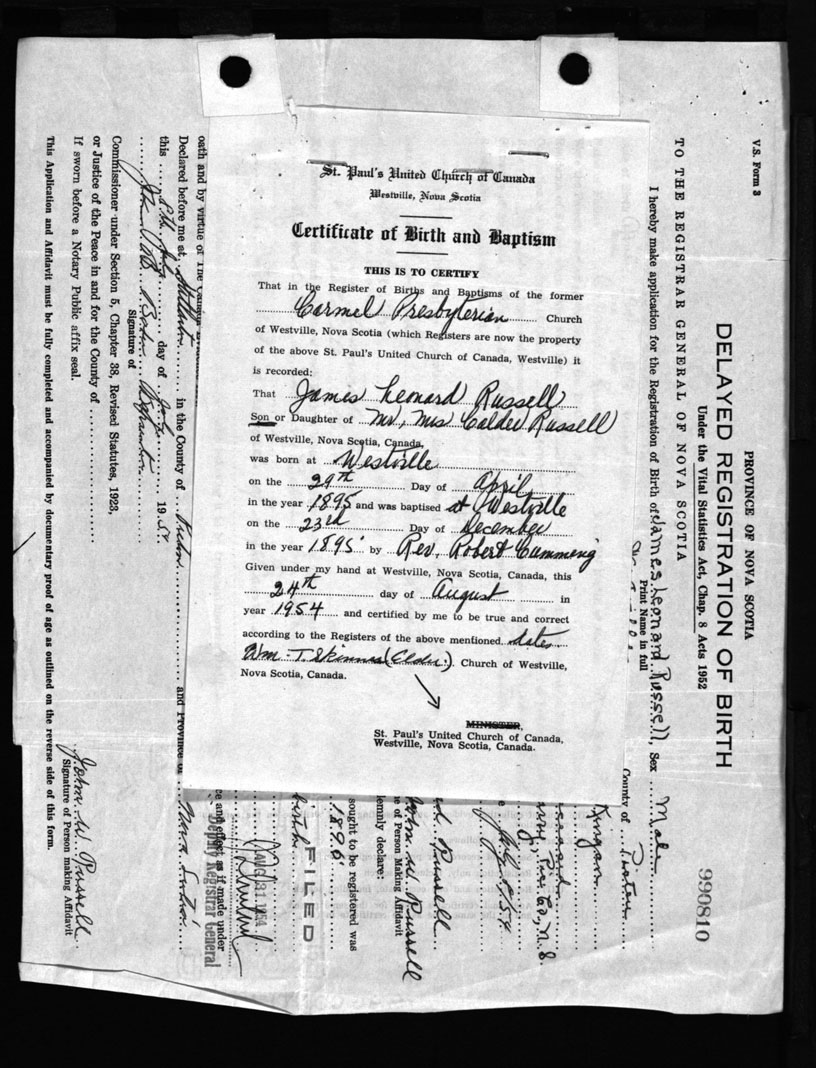 St. Paul's United Church of Canada
Westville, Nova Scotia
Certificate of Birth and Baptism
THIS IS TO CERTIFY
That in the Register of Births and Baptisms of the former
Carmel Presbyterian Church
of Westville, Nova Scotia (which Registers are now the property
of the above St. Paul's United Church of Canada, Westville) it
is recorded:
That James Leonard Russell
Son or Daughter of Mr, Mrs Calder Russell
of Westville, Nova Scotia, Canada,
was born at Westville
on the 29th Day of April
in the year 1895 and was baptised at Westville
on the 23rd Day of December
in the year 1895 by Rev. Robert Cumming
Given under my hand at Westville, Nova Scotia, Canada, this
24th day of August in
year 1954 and certified by me to be true and correct
according to the Registers of the above mentioned dates
Wm. T. Skinner (Elder.) Church of Westville,
Nova Scotia, Canada.
MINISTER,
St. Paul's United Church of Canada,
Westville, Nova Scotia, Canada.
V.S. Form 3
PROVINCE OF NOVA SCOTIA
DELAYED REGISTRATION OF BIRTH
Under the Vital Statistics Act, Chap. 8 Acts 1952
990810
TO THE REGISTRAR GENERAL OF NOVA SCOTIA
I hereby make application for the Registration of Birth of James Leonard Russell, Sex Male
Print Name in full
County of Pictou
July 5, 54
Russell
John W. Russell
me of Person Making Affidavit
lemnly declare:
sought to be registered was
1896
birth
FILED
AUG 31 1954
ce and effect as if made under
Deputy Registrar General
oath and by virtue of The Canada
Declared before me at in the County of
and Province of Nova Scotia
this day of 1954
Signature of
Commissioner under Section 5, Chapter 38, Revised Statutes, 1923,
or Justice of the Peace in and for the County of
If sworn before a Notary Public affix seal.
John W. Russell
Signature of Person making Affidavit
This Application and Affidavit must be fully completed and accompanied by documentary proof of age as outlined on the reverse side of this form.